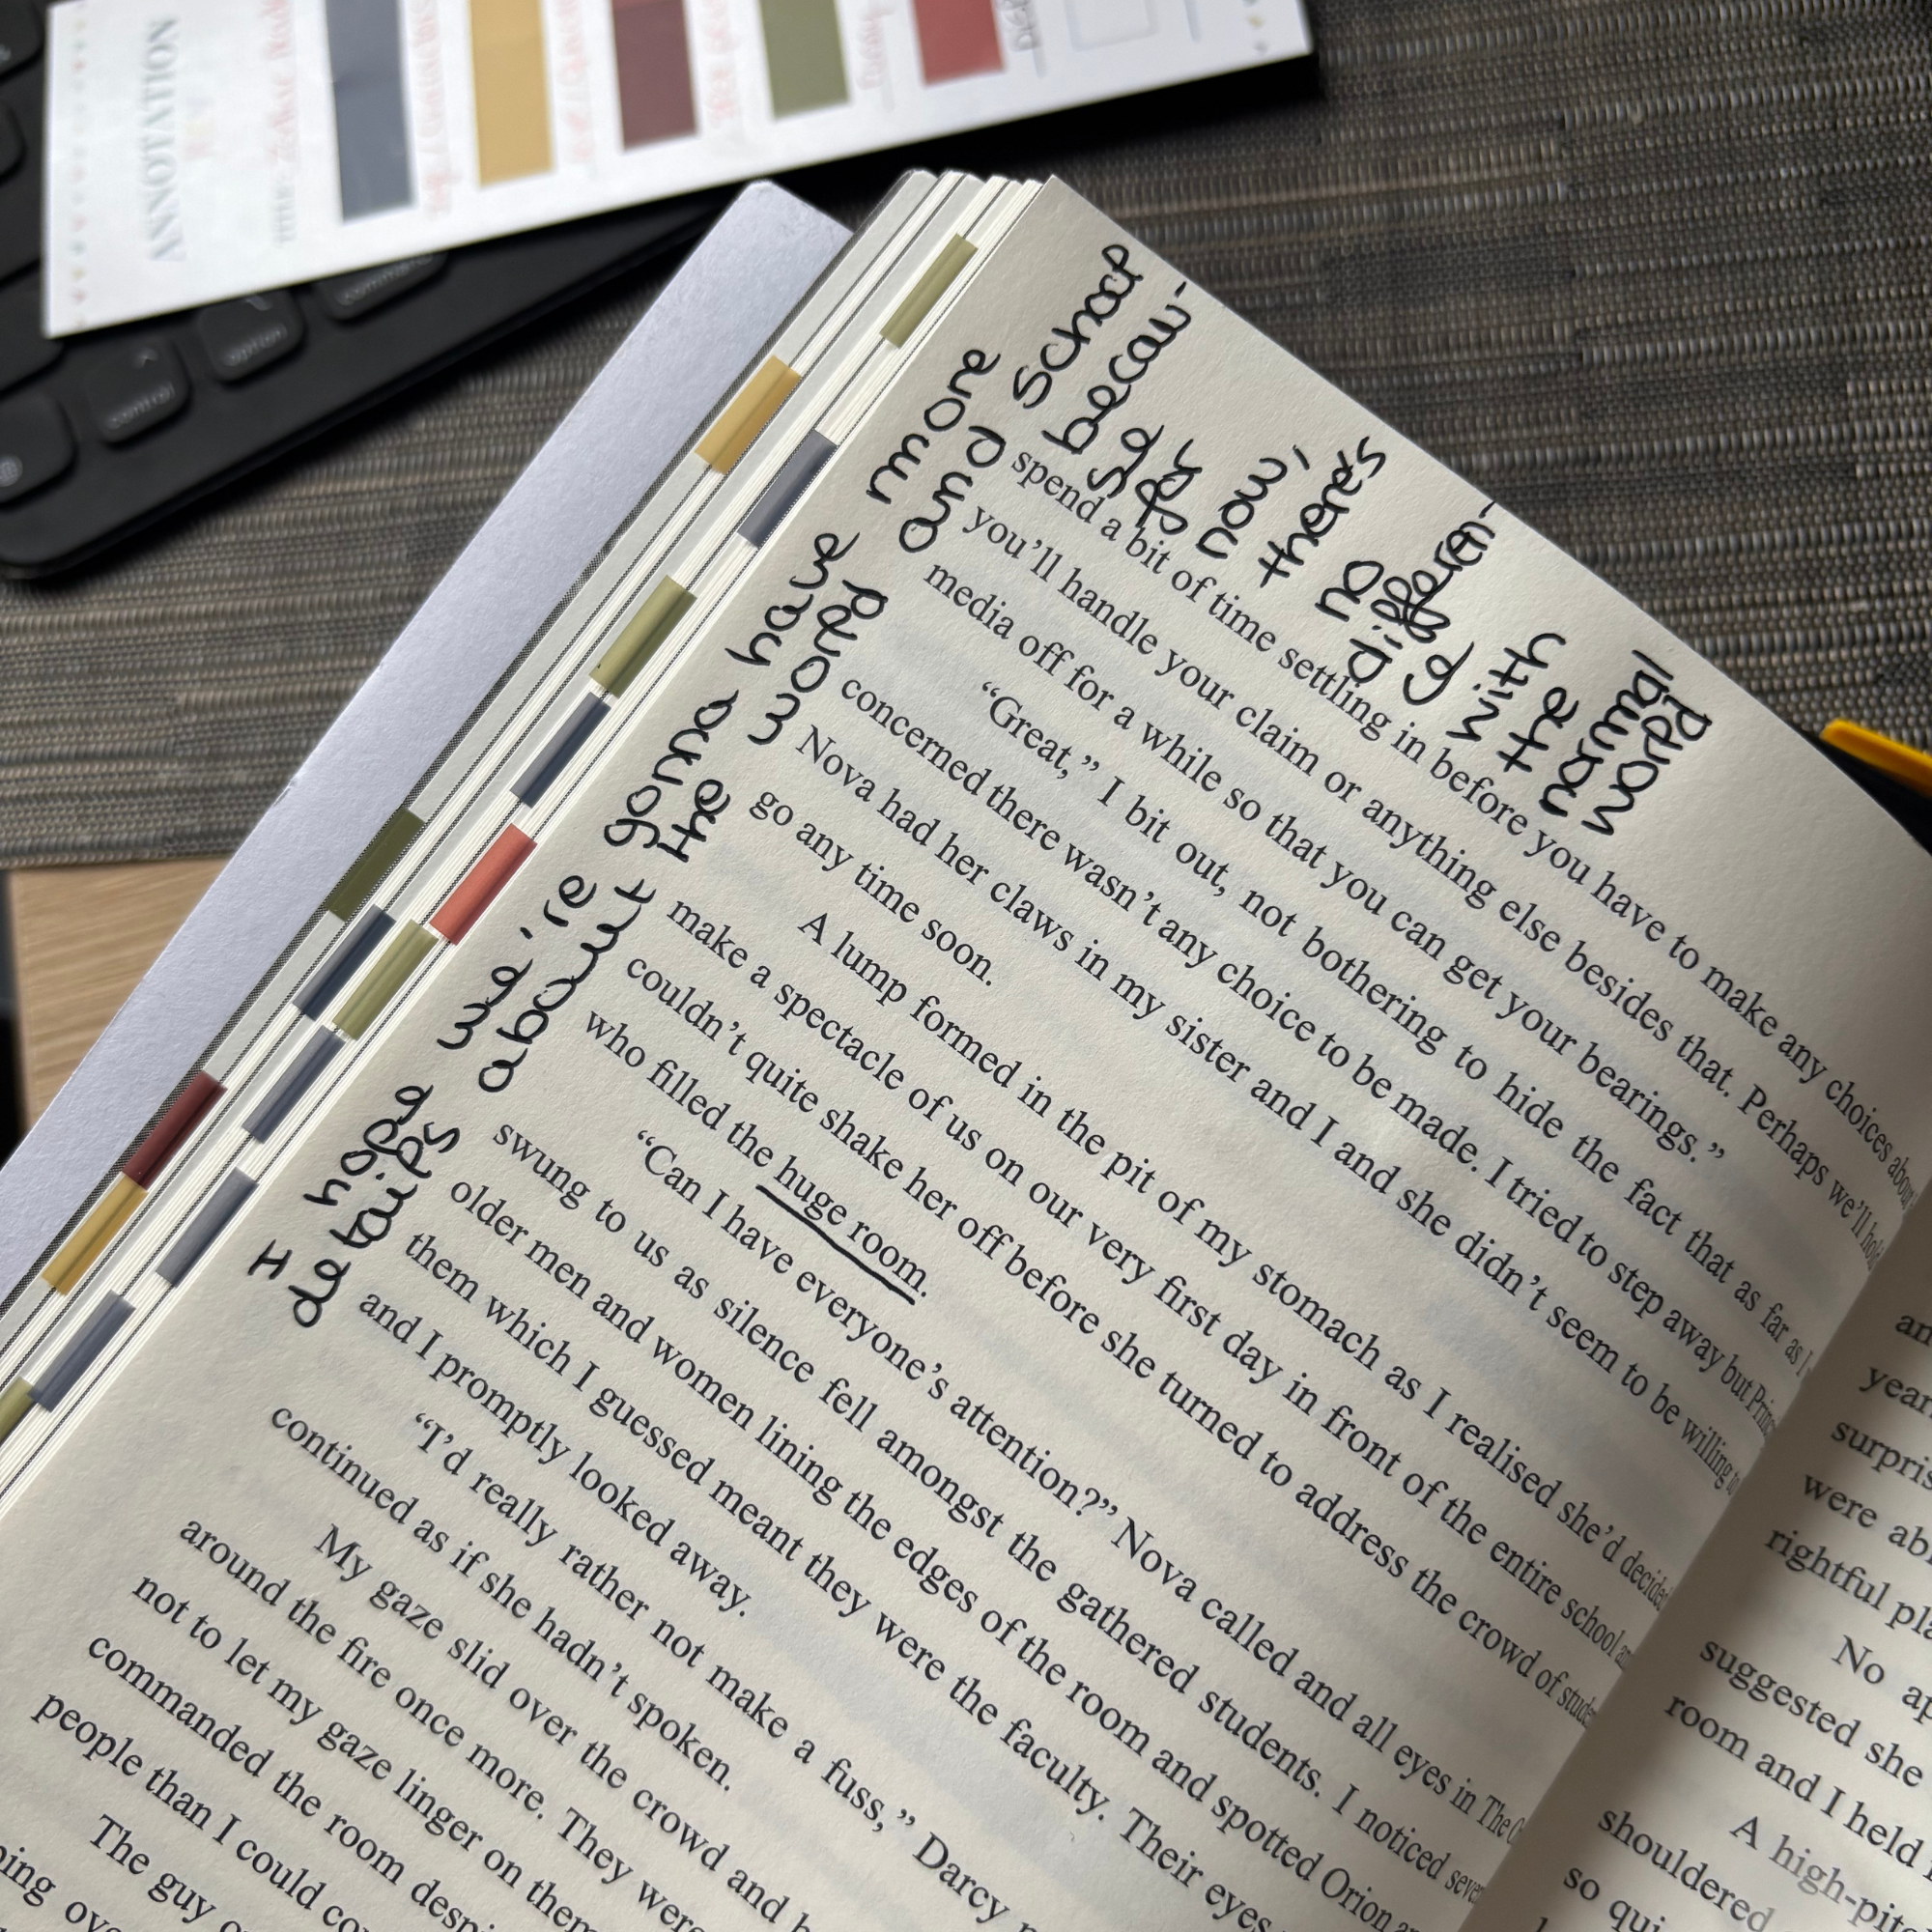 ANNOTATION
TITLE:
control
option
command
I hope we're gonna have more
details about the world and school
becau-
se for
now,
there's
no
differen-
ce
with
the
normal
world
spend a bit of time settling in before you have to make any choices about
you'll handle your claim or anything else besides that. Perhaps we'll hold
media off for a while so that you can get your bearings."
"Great," I bit out, not bothering to hide the fact that as far as I
concerned there wasn't any choice to be made. I tried to step away but Princ
Nova had her claws in my sister and I and she didn't seem to be willing to
go any time soon.
A lump formed in the pit of my stomach as I realised she'd decided
make a spectacle of us on our very first day in front of the entire school an
couldn't quite shake her off before she turned to address the crowd of stude
who filled the huge room.
"Can I have everyone's attention?" Nova called and all eyes in The O
swung to us as silence fell amongst the gathered students. I noticed seve
older men and women lining the edges of the room and spotted Orion
them which I guessed meant they were the faculty. Their eyes
and I promptly looked away.
"I'd really rather not make a fuss," Darcy
continued as if she hadn't spoken.
My gaze slid over the crowd and
around the fire once more. They were
not to let my gaze linger on them
commanded the room despi
people than I could
The guy
ping
an
year
surpris
were ab
rightful pla
No ap
suggested she
room and I held
A high-pit
shouldered
so qui